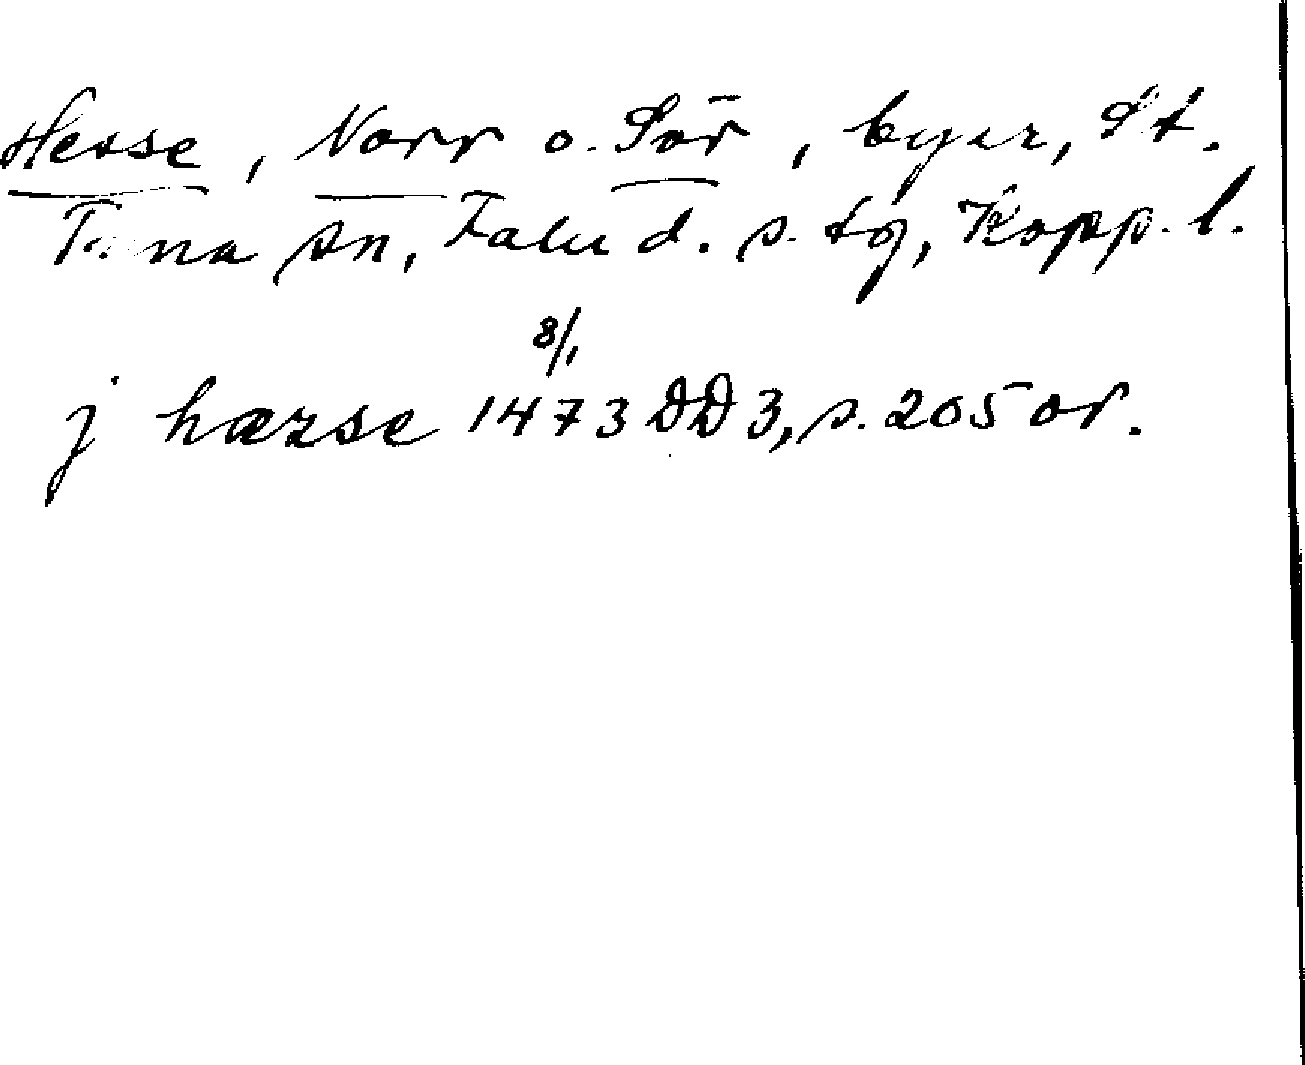 Hesse, Norr o. Sör, byar, St.
Tuna sn, Falu d. s. tg, Kopp. l.
8/1
j hærse 1473 DD 3, s. 205 or.